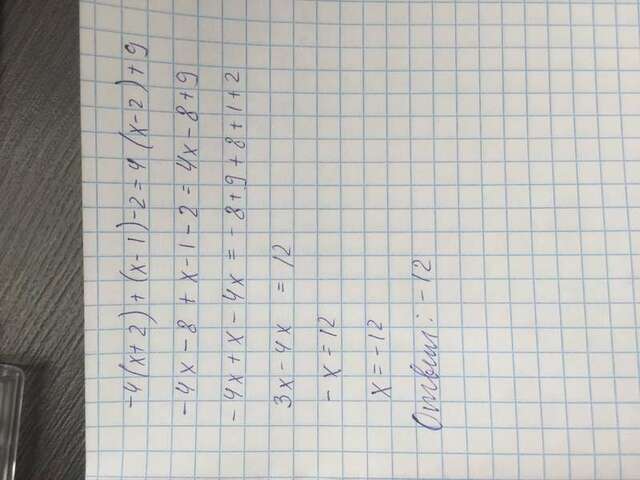 -4(x+2)+(x-1)-2=4(x-2)+9
-4x-8+x-1-2=4x-8+9
-4x+x-4x=-8+9+8+1+2
3x-4x=12
-x=12
x=-12
Ответ: -12